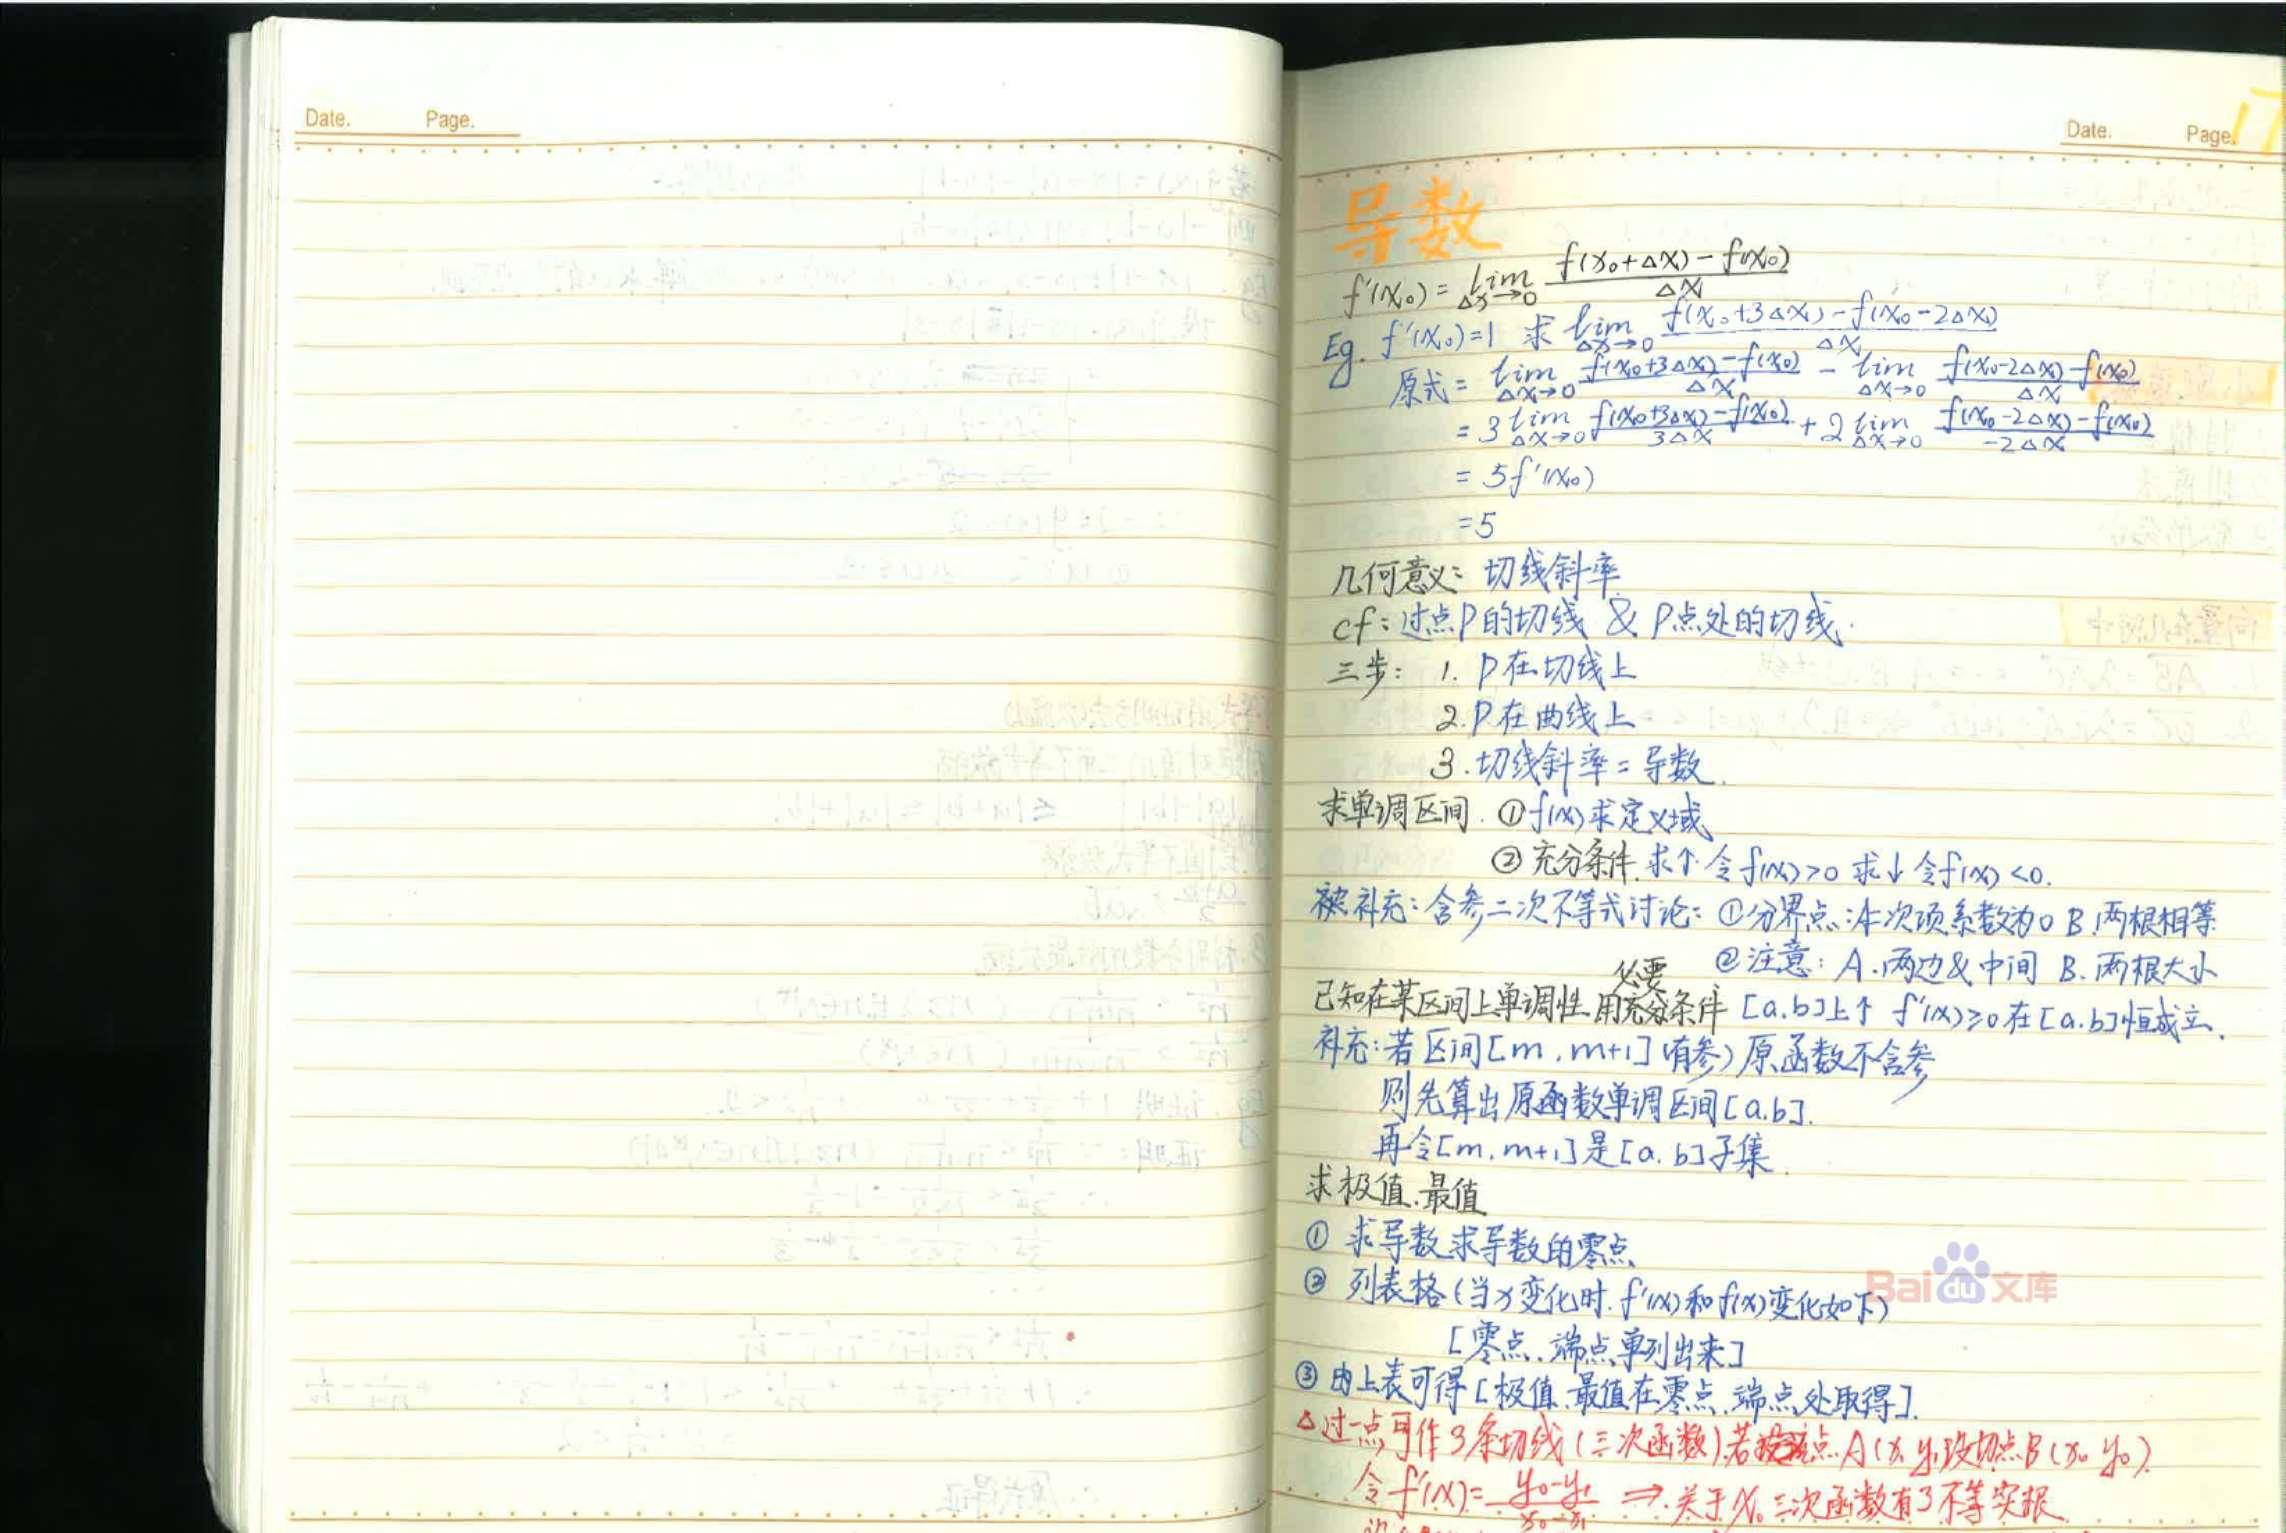 Date. Page.
Date. Page. 17
导数
f'(x₀) = lim Δx→0 f(x₀+Δx)-f(x₀) / Δx
Eg. f'(x₀)=1 求 lim Δx→0 f(x₀+3Δx)-f(x₀-2Δx) / Δx
原式 = lim Δx→0 f(x₀+3Δx)-f(x₀) / Δx - lim Δx→0 f(x₀-2Δx)-f(x₀) / Δx
= 3 lim Δx→0 f(x₀+3Δx)-f(x₀) / 3Δx + 2 lim Δx→0 f(x₀-2Δx)-f(x₀) / -2Δx
= 5f'(x₀)
=5
几何意义: 切线斜率
cf: 过点P的切线 & P点处的切线.
三步: 1. P在切线上
2. P在曲线上
3. 切线斜率 = 导数.
求单调区间. ① f(x)求定义域
② 充分条件. 求↑ 令f(x)>0 求↓ 令f(x)<0.
被补充: 含参二次不等式讨论: ①分界点: A.次项系数为0 B.两根相等
②注意: A.两边&中间 B.两根大小
必要
已知在某区间上单调性 用充分条件 [a.b]上↑ f'(x)≥0在[a.b]恒成立.
补充: 若区间[m, m+1] (有参) 原函数不含参
则先算出原函数单调区间[a.b].
再令[m, m+1]是[a.b]子集.
求极值.最值
① 求导数,求导数的零点.
② 列表格(当x变化时. f'(x)和f(x)变化如下)
[零点.端点单列出来]
③ 由上表可得[极值.最值在零点.端点处取得].
△过一点可作3条切线(三次函数)若点A(x₁ y₁)设切点B(x₀ y₀).
令f'(x)= y₀-y₁ / x₀-x₁ ⇒ 关于x₀三次函数有3不等实根
Bai du 文库